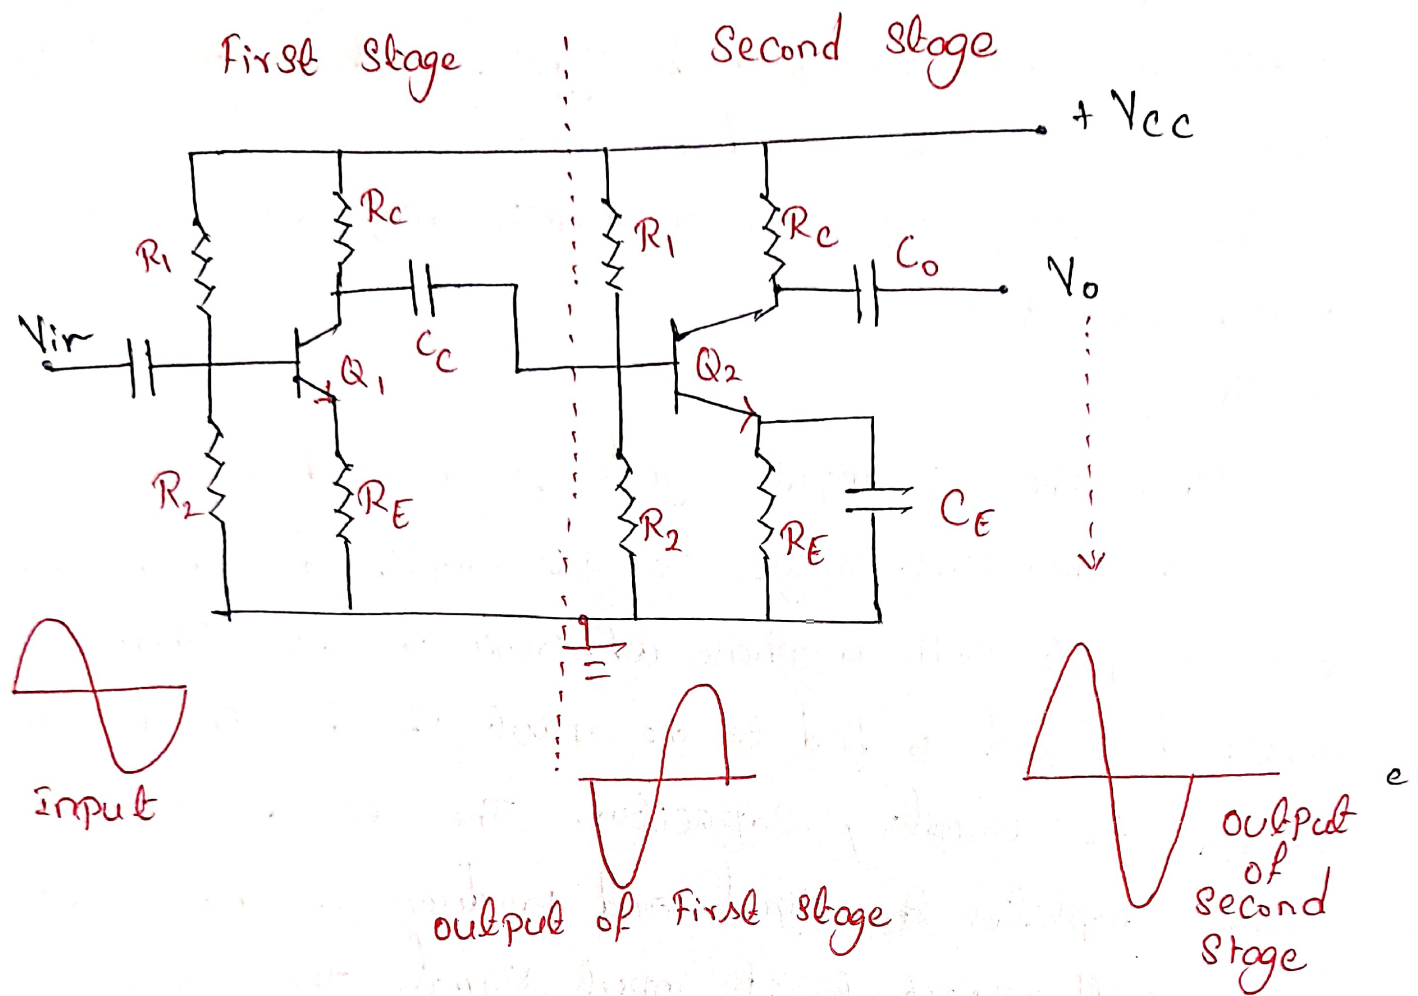 First stage
Second stage
+ VCC
RC
R1
R1
RC
Co
Vo
Vin
CC
Q1
Q2
R2
RE
R2
RE
CE
Input
output of First stage
output
of
Second
Stage
e